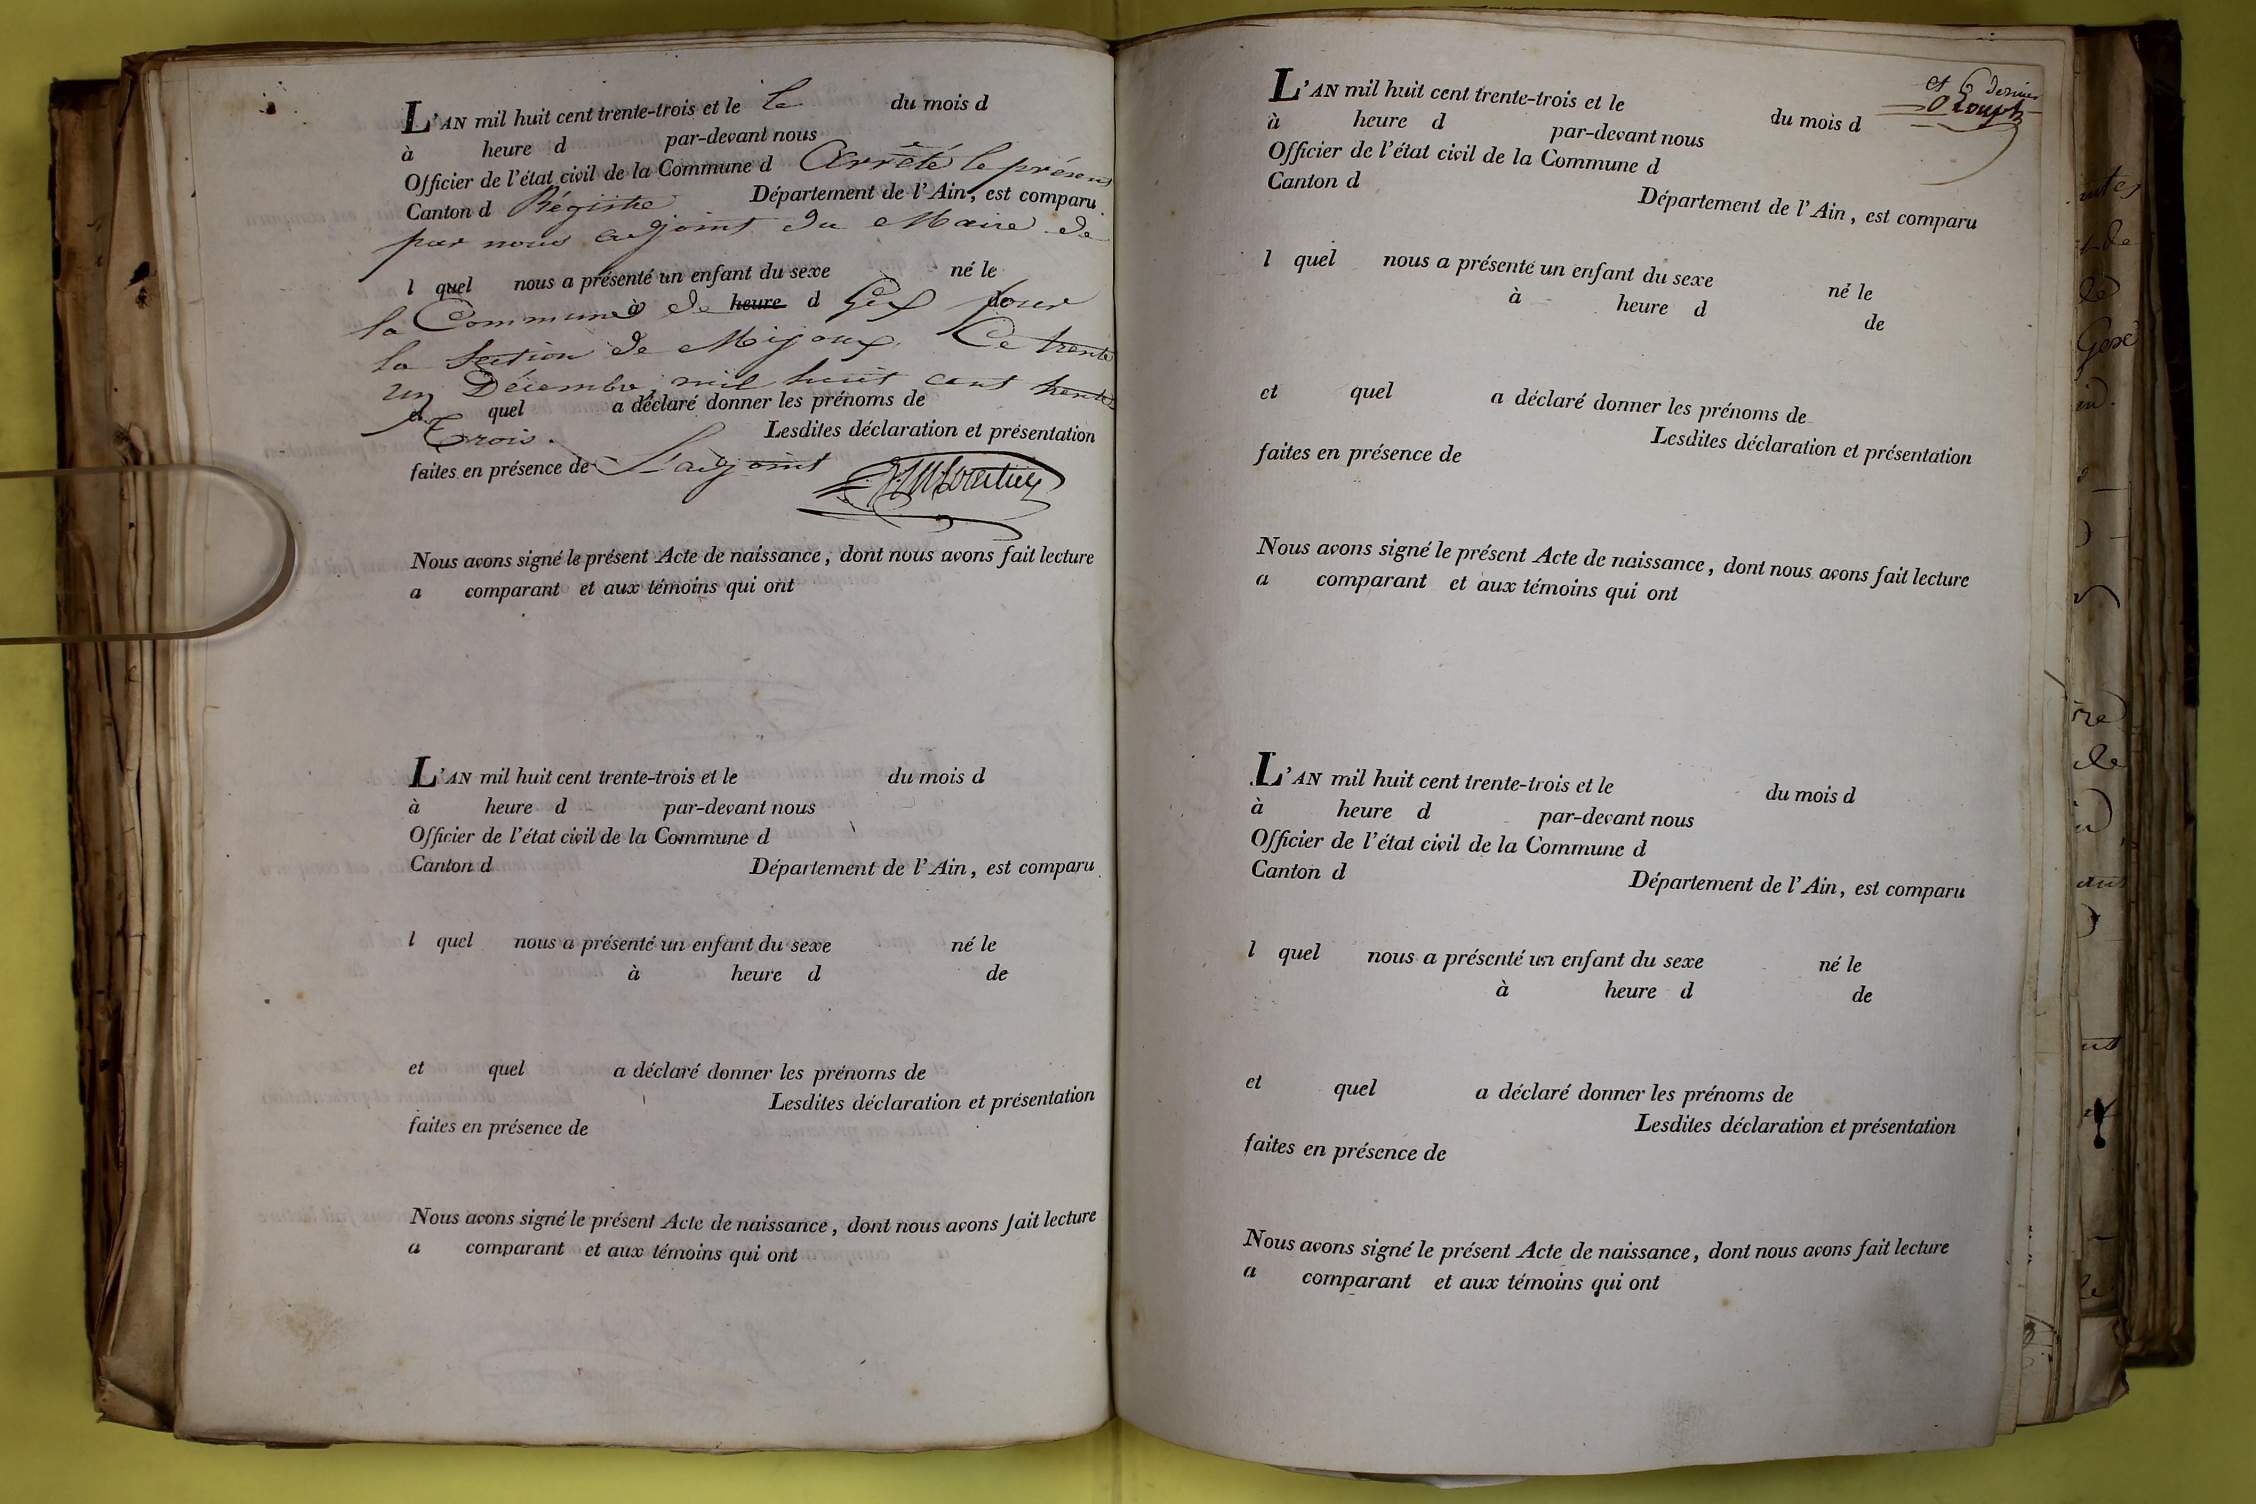 L'AN mil huit cent trente-trois et le Le du mois d
à heure d par-devant nous
Officier de l'état civil de la Commune d Arrêté le présent
Canton d Régistre Département de l'Ain, est comparu
par nous adjoint du Maire de
l quel nous a présenté un enfant du sexe né le
la Commune à de heure d Gex pour de
la Section de Mijoux. Ce trente
un Décembre mil huit cent trente
et quel a déclaré donner les prénoms de
Trois. Lesdites déclaration et présentation
faites en présence de L'adjoint
Nous avons signé le présent Acte de naissance, dont nous avons fait lecture
a comparant et aux témoins qui ont
L'AN mil huit cent trente-trois et le du mois d
à heure d par-devant nous
Officier de l'état civil de la Commune d
Canton d Département de l'Ain, est comparu
l quel nous a présenté un enfant du sexe né le
à heure d de
et quel a déclaré donner les prénoms de
Lesdites déclaration et présentation
faites en présence de
Nous avons signé le présent Acte de naissance, dont nous avons fait lecture
a comparant et aux témoins qui ont
et 6 dernier
L'AN mil huit cent trente-trois et le du mois d
à heure d par-devant nous
Officier de l'état civil de la Commune d
Canton d Département de l'Ain, est comparu
l quel nous a présenté un enfant du sexe né le
à heure d de
et quel a déclaré donner les prénoms de
Lesdites déclaration et présentation
faites en présence de
Nous avons signé le présent Acte de naissance, dont nous avons fait lecture
a comparant et aux témoins qui ont
L'AN mil huit cent trente-trois et le du mois d
à heure d par-devant nous
Officier de l'état civil de la Commune d
Canton d Département de l'Ain, est comparu
l quel nous a présenté un enfant du sexe né le
à heure d de
et quel a déclaré donner les prénoms de
Lesdites déclaration et présentation
faites en présence de
Nous avons signé le présent Acte de naissance, dont nous avons fait lecture
a comparant et aux témoins qui ont